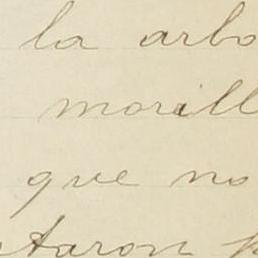 la arbo
morill
que no
taron p